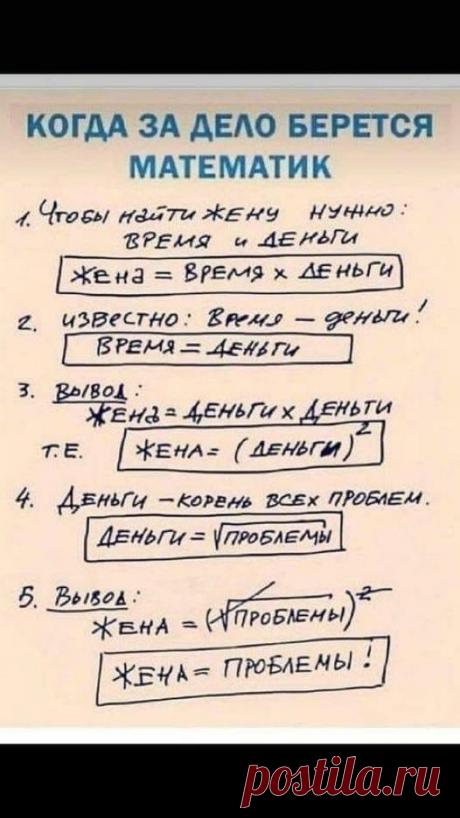 КОГДА ЗА ДЕЛО БЕРЕТСЯ
МАТЕМАТИК
1. Чтобы найти жену нужно:
время и деньги
Жена = время х деньги
2. Известно: Время – деньги!
Время = деньги
3. Вывод:
Жена = деньги х деньги
т.е. Жена = (деньги)²
4. Деньги – корень всех проблем.
Деньги = √проблемы
5. Вывод:
Жена = (√проблемы)²
Жена = проблемы!
postila.ru